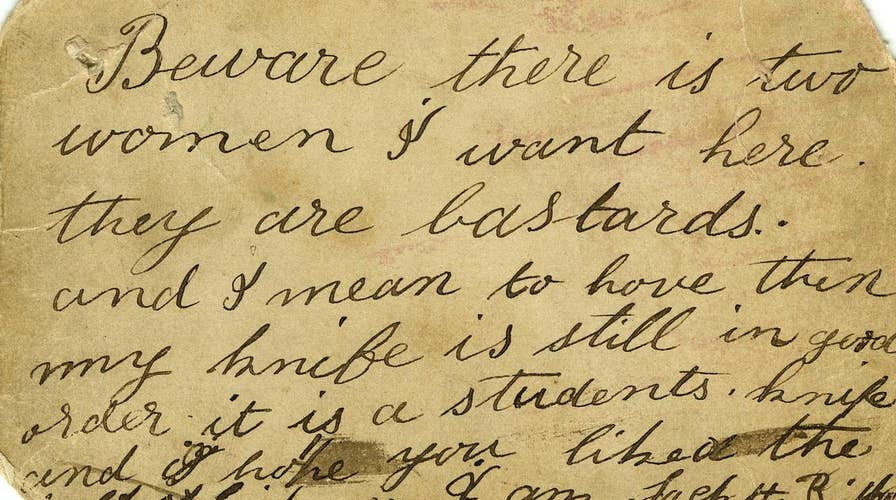 Beware there is two
women I want here.
they are bastards.
and I mean to have them
my knife is still in good
order it is a students. knife
and I hope you liked the
I am Jack the